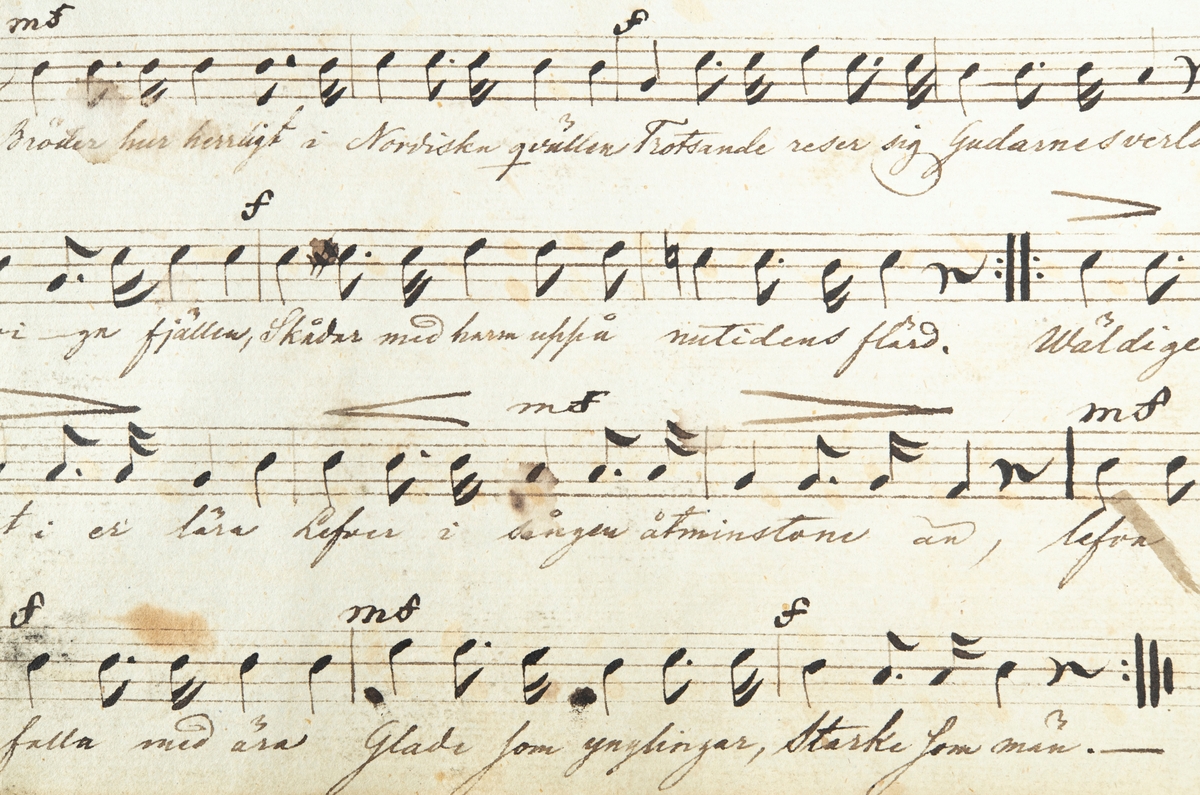 mf f
Bröder hur herrligt i Nordiska qvällen Trotsande reser sig Gudarnes verld
f
fjällen, Skådar med harm uppå nutidens flärd. Wäldige
mf mf
t i er lära Lefver i sången åtminstone än, lefva
f mf f
falla med ära Glade som ynglingar, Starke som män. —